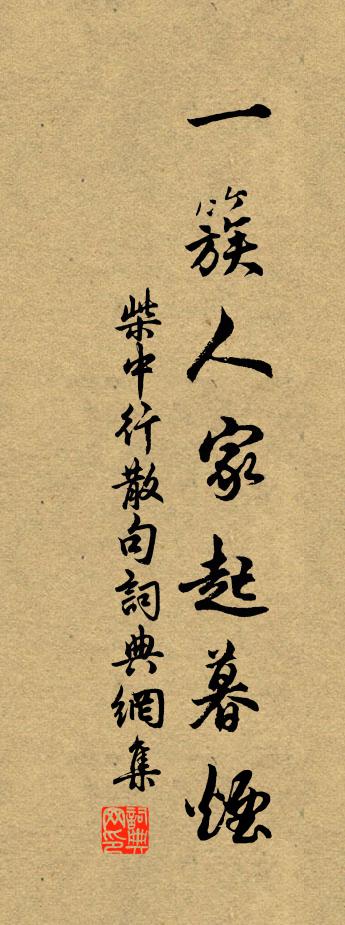 一簇人家起暮煙
柴中行散句詞典網集
詞典网印